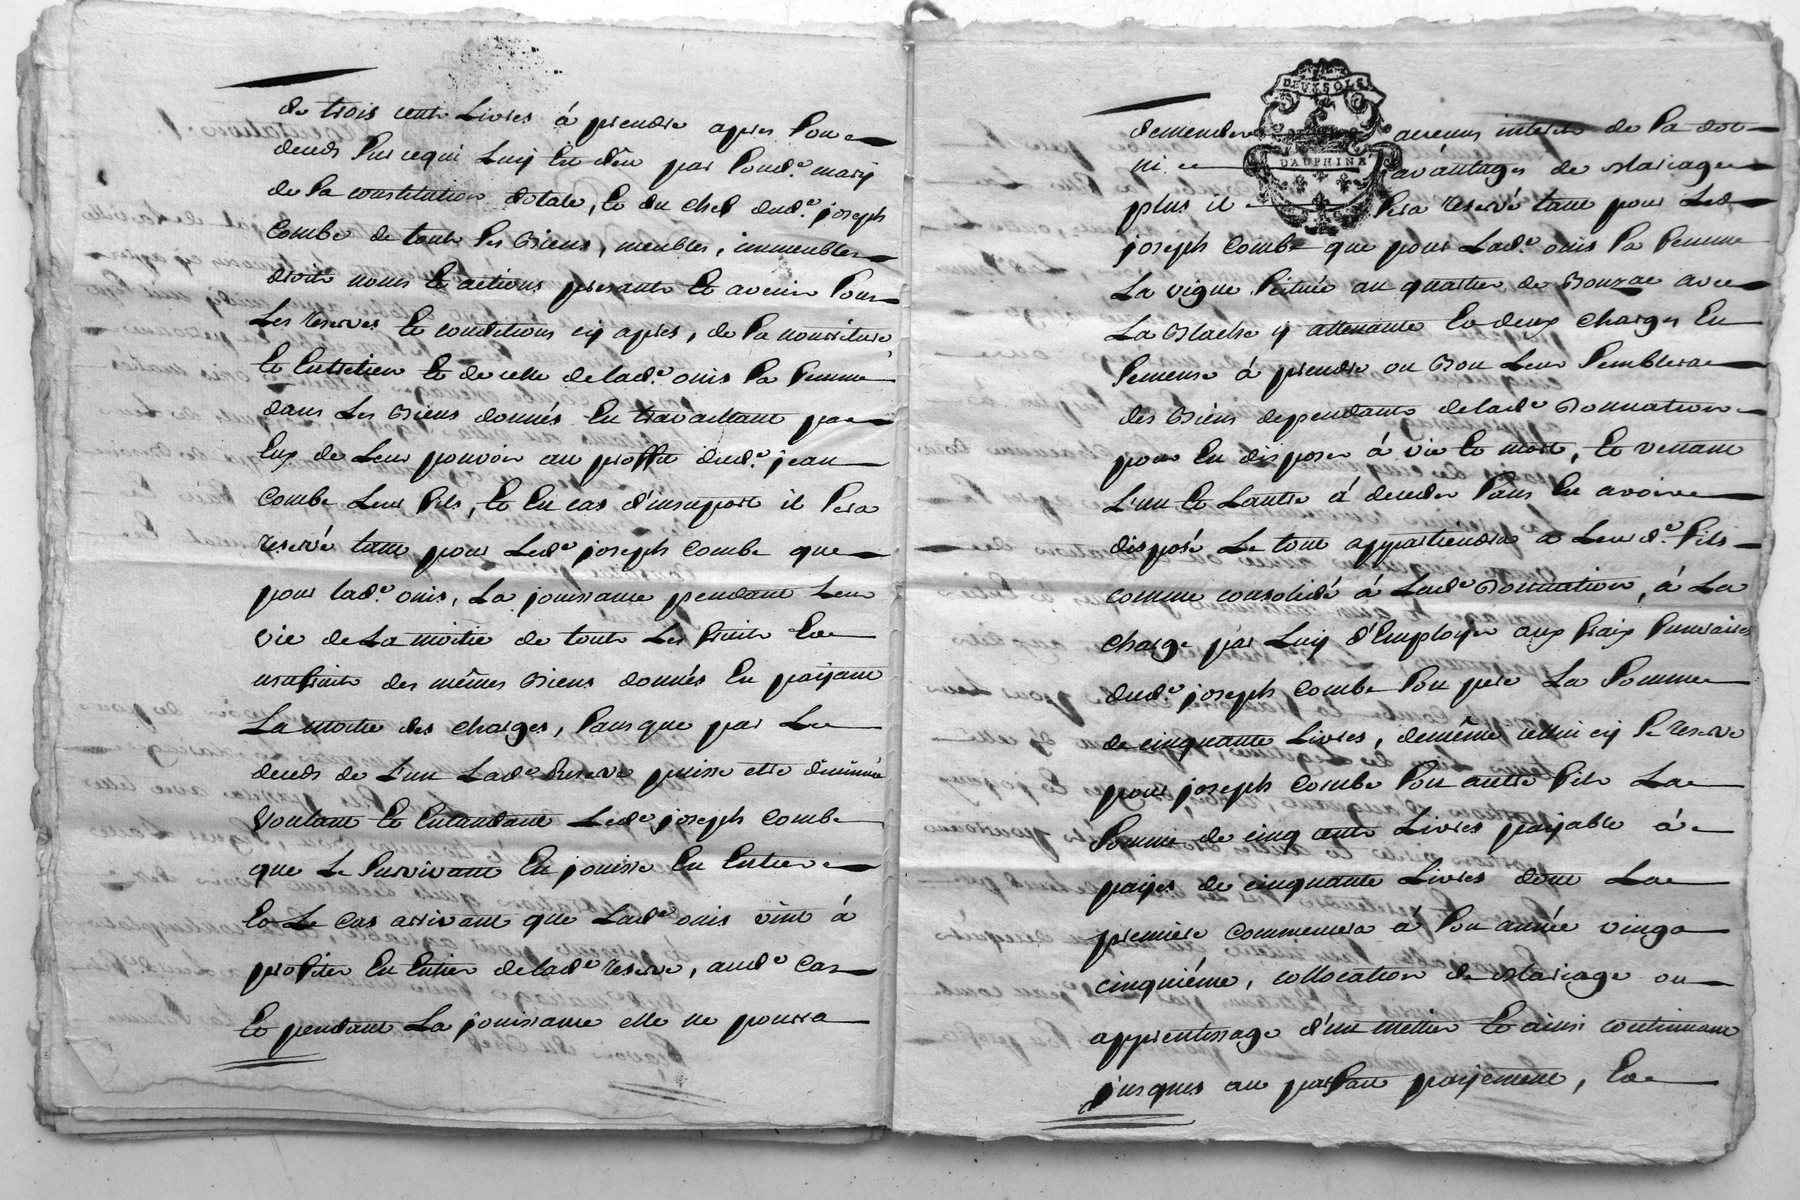 de trois cents Livres à prendre apres son
deceds sur cequi Luy Est deu par sond.t mary
de sa constitution dotale, Et du chef dud.t joseph
Combe de touts ses Biens, meubles, immeubles
droits noms Et actions presants Et avenir sous
Les reserves Et conditions cy apres, de sa nourriture
Et Entretien Et de celle delad.e onis sa femme
dans Les Biens donnés En travaillant par
Eux de Leur pouvoir au proffit dud.t jean
Combe Leur fils, Et En cas d'insuport il sera
reservé tant pour Led.t joseph Combe que
pour lad.e onis, La jouissance pendant Leur
vie de La moitié de touts Les fruits Et
usufruits des mêmes Biens donnés En païjant
La moitié des charges, sansque par Le
deceds de L'un Lad.e Reserve puisse etre diminuée
Voulant Et Entandant Led.t joseph Combe
que Le survivant En jouisse En Entier
Et Le Cas arrivant que Lad.e onis vint à
profiter En Entier delad.e reserve, aud.t Cas
Et pendant La jouissance elle ne pourra
DEUX SOLS
DAUPHINÉ
demender aucuns interets de sa dot
ni avántages de Mariage
plus il sera reservé tant pour Led.t
joseph Combe que pour Lad.e onis sa femme
La vigne scituée au quartier de Bouzac avec
La Blache y attenante Et deux charges En
semence à prendre ou Bon Leur semblera
des Biens dependants delad.e Donnation
pour En disposer à vie Et mort, Et venant
L'un Et Lautre à deceder sans En avoir
disposé Le tout appartiendra a Leurd.t fils
comme consolidé à Lad.e Donnation, à La
charge par Luy d'Employer aux fraix funeraires
dud.t joseph Combe son pere La somme
de cinquante Livres, demême cellui cy se reserve
pour joseph Combe son autre fils La
somme de cinq cents Livres païjable à
païjes de cinquante Livres dont La
premiere commencera à son année vingt
cinquiéme, collocation de Mariage ou
apprentissage d'un mettier Et ainsi continuant
jusques au parfait païjement, Et